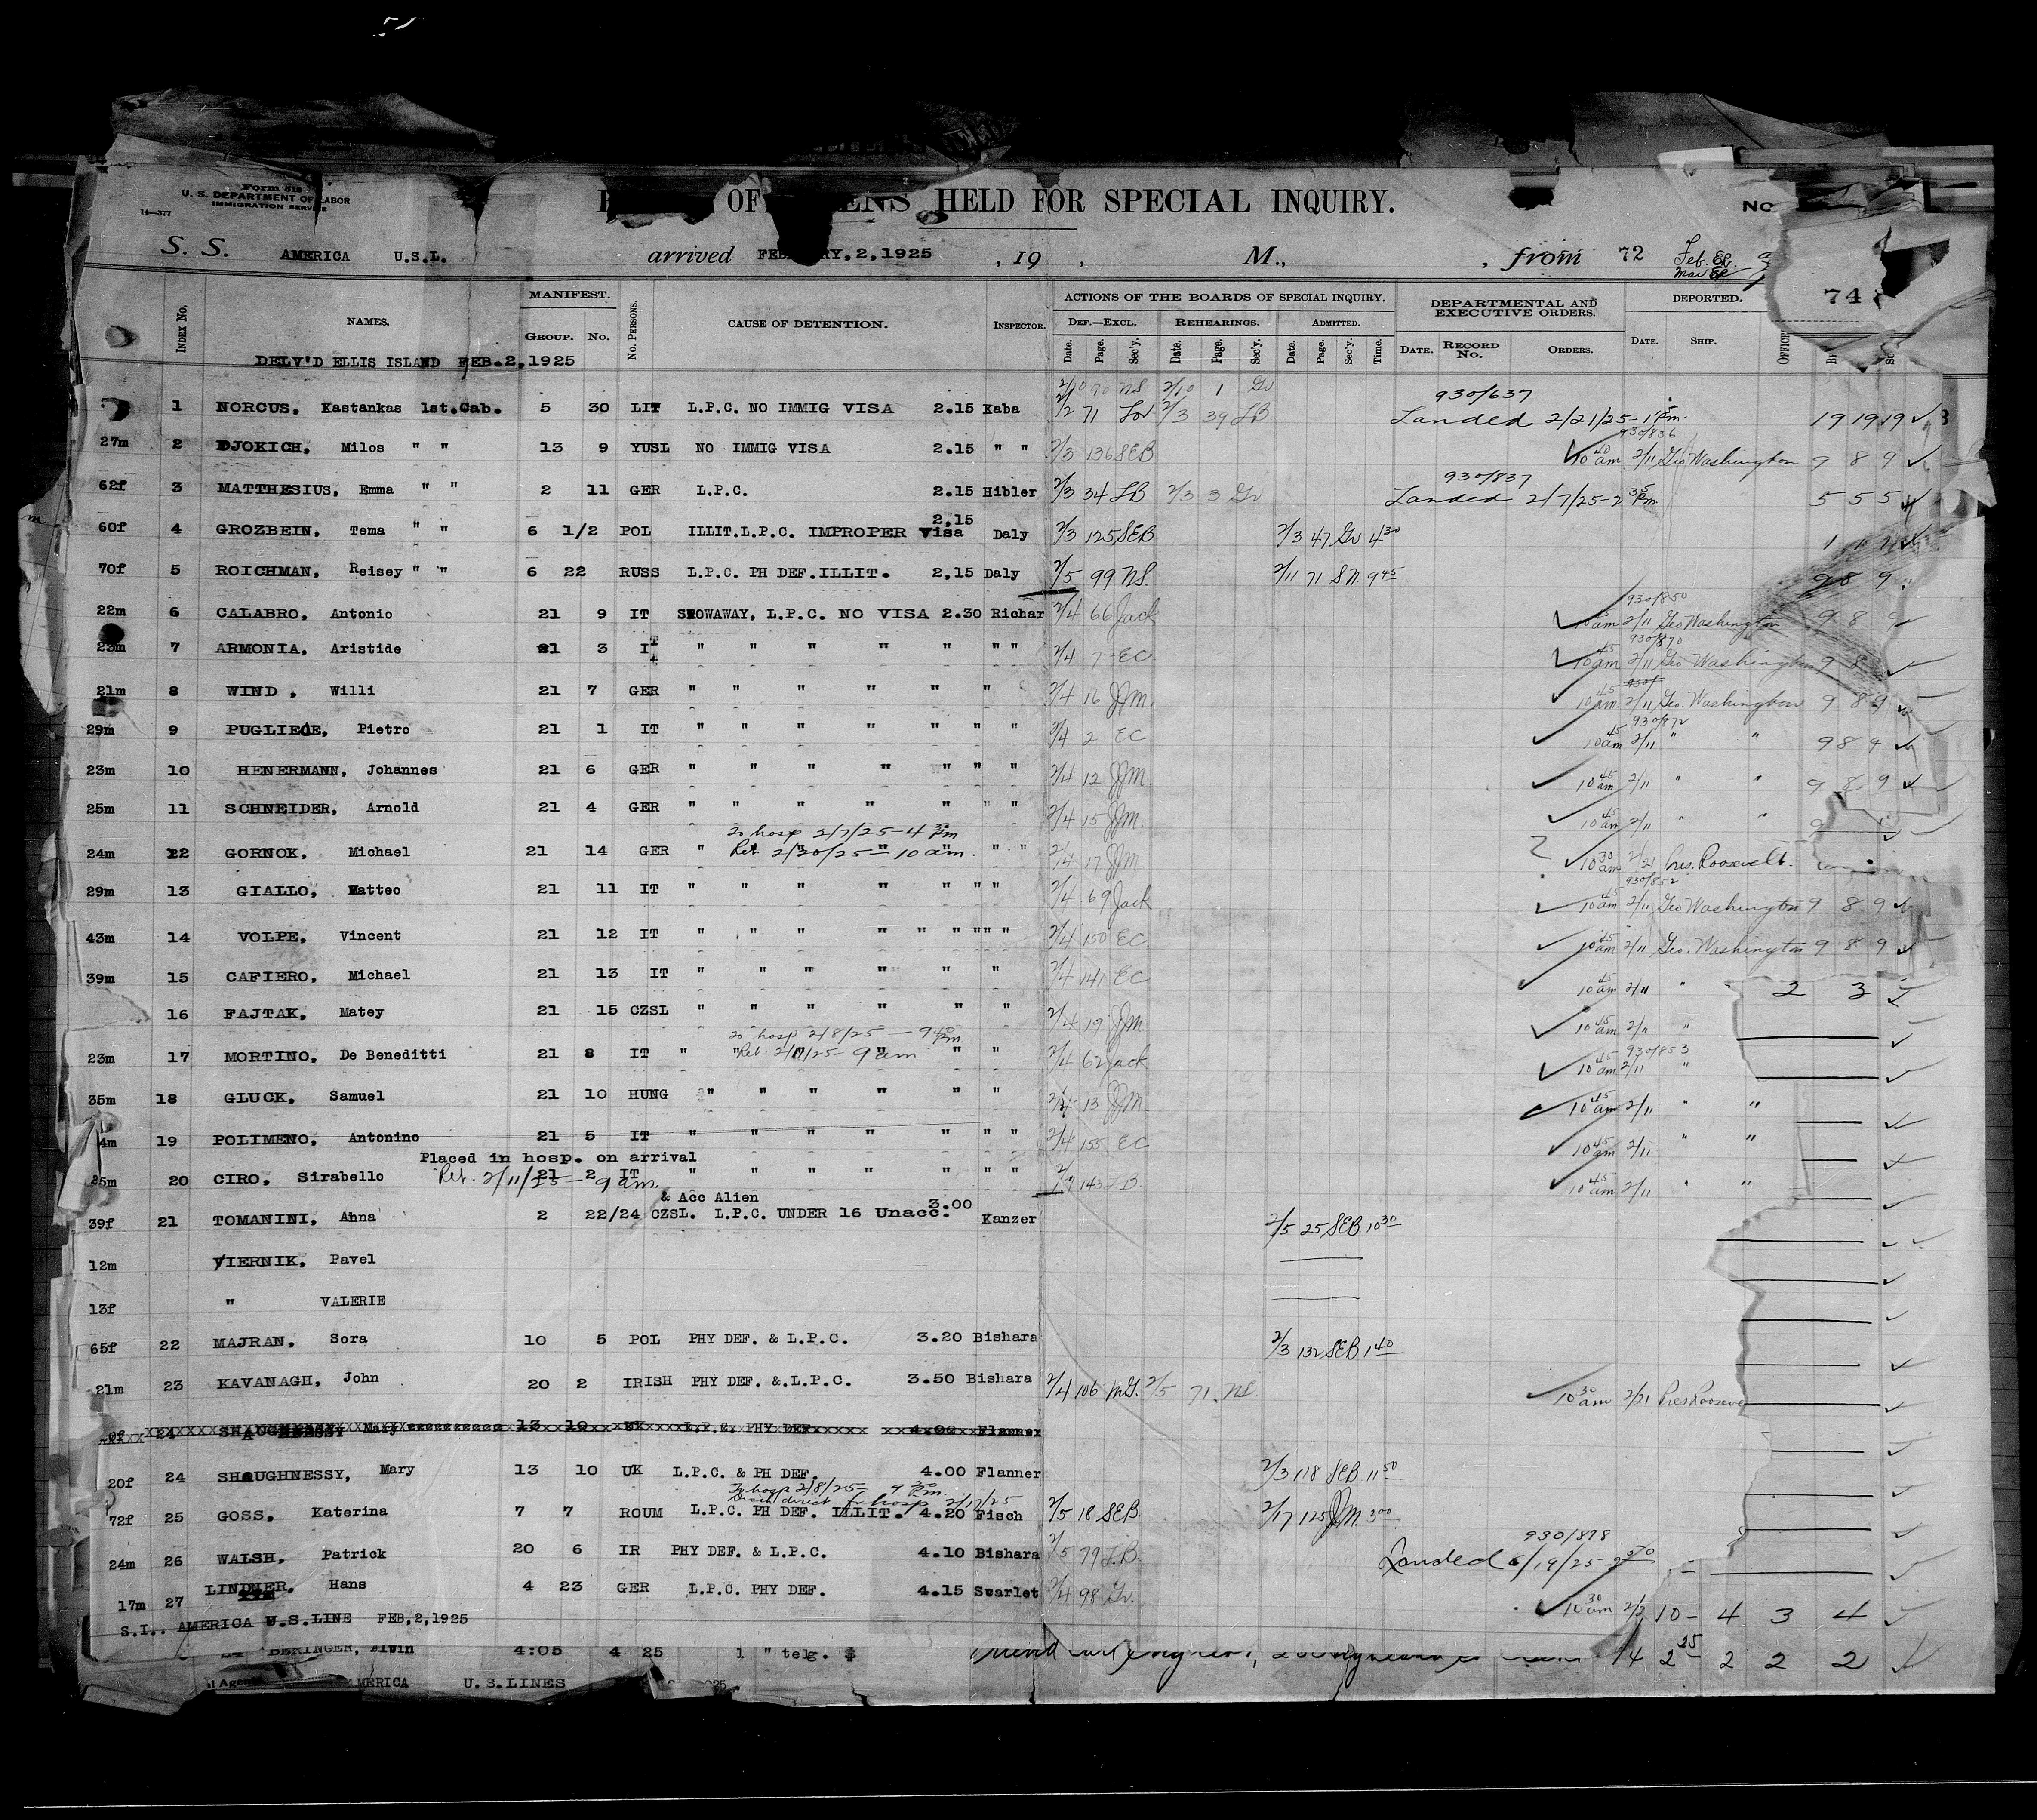 Form 518
U. S. DEPARTMENT OF LABOR
IMMIGRATION SERVICE
14—377
OF HELD FOR SPECIAL INQUIRY.
NO
S. S. AMERICA U.S.L. arrived FEB RY, 2, 1925 , 19 , M., , from 72
74
INDEX No. NAMES. MANIFEST. GROUP. No. No. PERSONS. CAUSE OF DETENTION. INSPECTOR. ACTIONS OF THE BOARDS OF SPECIAL INQUIRY. DEF.—EXCL. REHEARINGS. ADMITTED. DEPARTMENTAL AND EXECUTIVE ORDERS. DEPORTED.
Date. Page. Sec'y. Date. Page. Sec'y. Date. Page. Sec'y. Time. DATE. RECORD No. ORDERS. DATE. SHIP.
DELV'D ELLIS ISLAND FEB.2,1925
2/10 90 NS 2/10 1 Gv 930/637
1 NORCUS, Kastankas 1st.Cab. 5 30 LIT L.P.C. NO IMMIG VISA 2.15 Kaba 71 2/3 39 LB Landed 2/21/25 19 19 19
930/836
27m 2 DJOKICH, Milos " " 13 9 YUSL NO IMMIG VISA 2.15 " " 2/3 136 SEB 10 40 am 2/11 Geo Washington 9 8 9
930/837
62f 3 MATTHESIUS, Emma " " 2 11 GER L.P.C. 2.15 Hibler 2/3 34 LB 2/3 3 Gv Landed 2/7/25-2 35 Pm 5 5 5
60f 4 GROZBEIN, Tema " " 6 1/2 POL ILLIT.L.P.C. IMPROPER Visa 2.15 Daly 2/3 125 SEB 2/3 47 Gv 4 30
70f 5 ROICHMAN, Reisey " " 6 22 RUSS L.P.C. PH DEF.ILLIT. 2.15 Daly 2/5 99 NS 2/11 71 SN 9 45
930/850
22m 6 CALABRO, Antonio 21 9 IT STOWAWAY, L.P.C. NO VISA 2.30 Richar 2/4 66 Jack 10 am 2/11 Geo Washington 9 8 9
930/870
23m 7 ARMONIA, Aristide 21 3 IT " " " " " " " 2/4 7 EC 10 45 am 2/11 Geo Washington 9 8
21m 8 WIND, Willi 21 7 GER " " " " " " 2/4 16 JJM 10 45 am 2/11 Geo. Washington 9 8 9
930/872
29m 9 PUGLIESE, Pietro 21 1 IT " " " " " " " 2/4 2 EC 10 45 am 2/11 " " 9 8 9
23m 10 HENERMANN, Johannes 21 6 GER " " " " " " " 2/4 12 JJM 10 45 am 2/11 " " 9 8 9
25m 11 SCHNEIDER, Arnold 21 4 GER " " " " " " " 2/4 15 JJM 10 45 am 2/11 " " 9
To hosp 2/7/25-4 Pm
24m 12 GORNOK, Michael 21 14 GER " Ret 2/20/25 — 10 am. " " 2/4 17 JJM 10 30 am 2/21 Pres. Roosevelt.
930/852
29m 13 GIALLO, Matteo 21 11 IT " " " " " " " 2/4 69 Jack 10 45 am 2/11 Geo Washington 9 8 9
43m 14 VOLPE, Vincent 21 12 IT " " " " " " " " " 2/4 150 EC 10 45 am 2/11 Geo. Washington 9 8 9
39m 15 CAFIERO, Michael 21 13 IT " " " " " " 2/4 141 EC 10 45 am 2/11 " 2 3
16 FAJTAK, Matey 21 15 CZSL " " " " " " 2/4 19 JJM 10 45 am 2/11 "
To hosp 2/8/25 — 9 40 Pm.
23m 17 MORTINO, De Beneditti 21 8 IT " Ret. 9 am " " 2/4 62 Jack 10 45 am 2/11 930/853 "
35m 18 GLUCK, Samuel 21 10 HUNG " " " " " " 2/4 13 JJM 10 45 am 2/11 " "
4m 19 POLIMENO, Antonino 21 5 IT " " " " " " " 2/4 155 EC 10 45 am 2/11 " "
Placed in hosp. on arrival
25m 20 CIRO, Sirabello Ret. 2/11/25 — 9 am. 21 2 IT " " " " " " " 143 10 45 am 2/11 " "
& Acc Alien
39f 21 TOMANINI, Anna 2 22/24 CZSL. L.P.C. UNDER 16 Unacc. 3.00 Kanzer 2/5 25 SEB 10 30
12m VIERNIK, Pavel
13f " VALERIE
65f 22 MAJRAN, Sora 10 5 POL PHY DEF. & L.P.C. 3.20 Bishara 2/3 132 SEB 1 40
21m 23 KAVANAGH, John 20 2 IRISH PHY DEF. &.L.P.C. 3.50 Bishara 2/4 106 MG. 2/5 71 NS 10 30 am 2/21 Pres Rooseve
24 SHAUGHNESSY Mary 13 10 UK L.P.C. PHY DEF. 4.00 Flanner
20f 24 SHAUGHNESSY, Mary 13 10 UK L.P.C. & PH DEF. 4.00 Flanner 2/3 118 SEB 11 50
To hosp 2/8/25 — 9 Pm.
direct fr hosp 2/17/25
72f 25 GOSS, Katerina 7 7 ROUM L.P.C. PH DEF. ILLIT. 4.20 Fisch 2/5 18 SEB 2/17 125 JJM 3 00
930/878
24m 26 WALSH, Patrick 20 6 IR PHY DEF. & L.P.C. 4.10 Bishara 2/5 79 LB Landed /19/25
17m 27 LINDNER, Hans 4 23 GER L.P.C. PHY DEF. 4.15 Svarlet 2/4 98 Gv. 10 30 am 10 - 4 3 4
S.I.. AMERICA U.S.LINE FEB,2,1925
24 BERINGER, Elwin 4:05 4 25 1 " telg. $ 14 2 25 2 2 2
AMERICA U.S.LINES